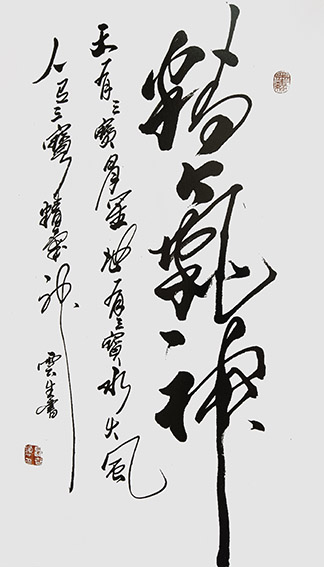 精氣神
天有三寶日月星地有三寶水火風
人有三寶精氣神 雲生書